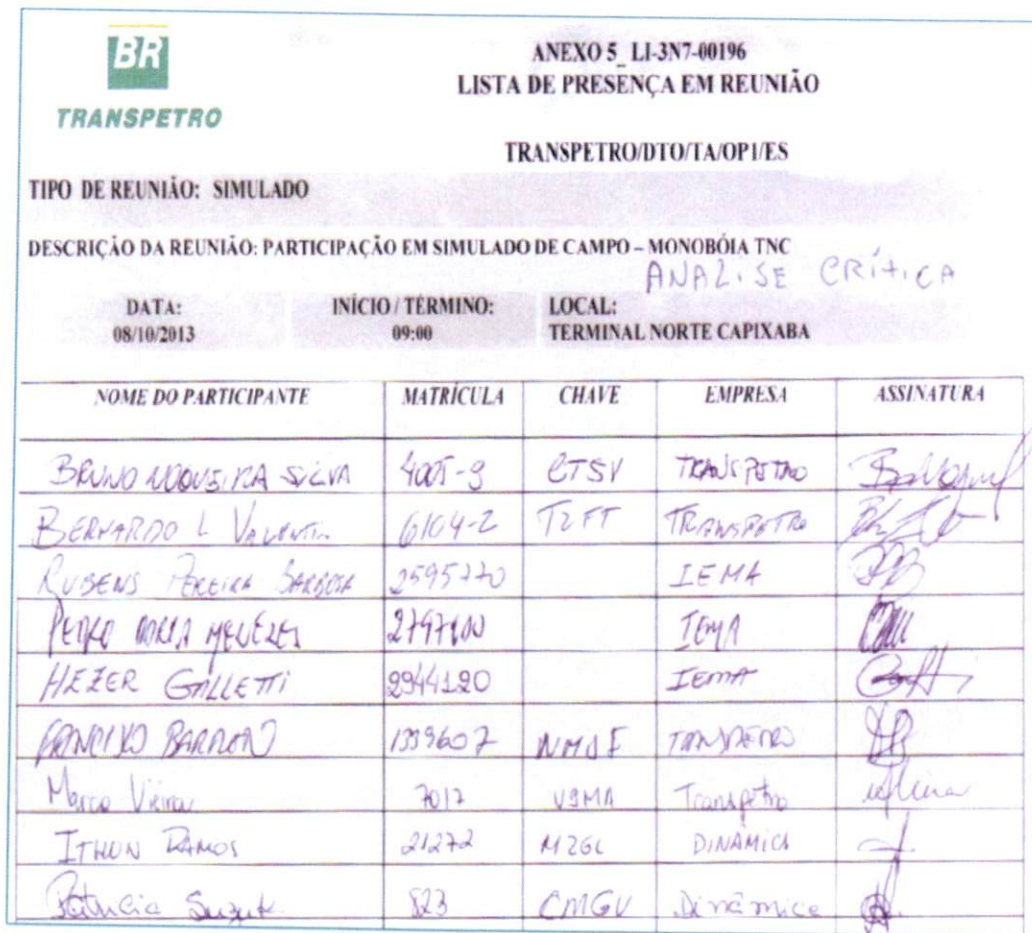 BR
TRANSPETRO
ANEXO 5_ LI-3N7-00196
LISTA DE PRESENÇA EM REUNIÃO
TRANSPETRO/DTO/TA/OP1/ES
TIPO DE REUNIÃO: SIMULADO
DESCRIÇÃO DA REUNIÃO: PARTICIPAÇÃO EM SIMULADO DE CAMPO – MONOBÓIA TNC
ANALISE CRÍTICA
DATA: INÍCIO / TÉRMINO: LOCAL:
08/10/2013 09:00 TERMINAL NORTE CAPIXABA
NOME DO PARTICIPANTE MATRÍCULA CHAVE EMPRESA ASSINATURA
BRUNO NOGUEIRA SILVA CTSV TRANSPETRO
BERNARDO L VALENTIM 6104-2 TRANSPETRO
RUBENS PEREIRA BARBOSA 2595770 IEMA
PEDRO MENEZES IEMA
HEZER GALLETTI 2944120 IEMA
1339607 TRANSPETRO
Marco Vieira 7017 Transpetro
ITHON RAMOS 21272 DINÂMICA
Patricia Suzuk 823 CMGV Dinâmica